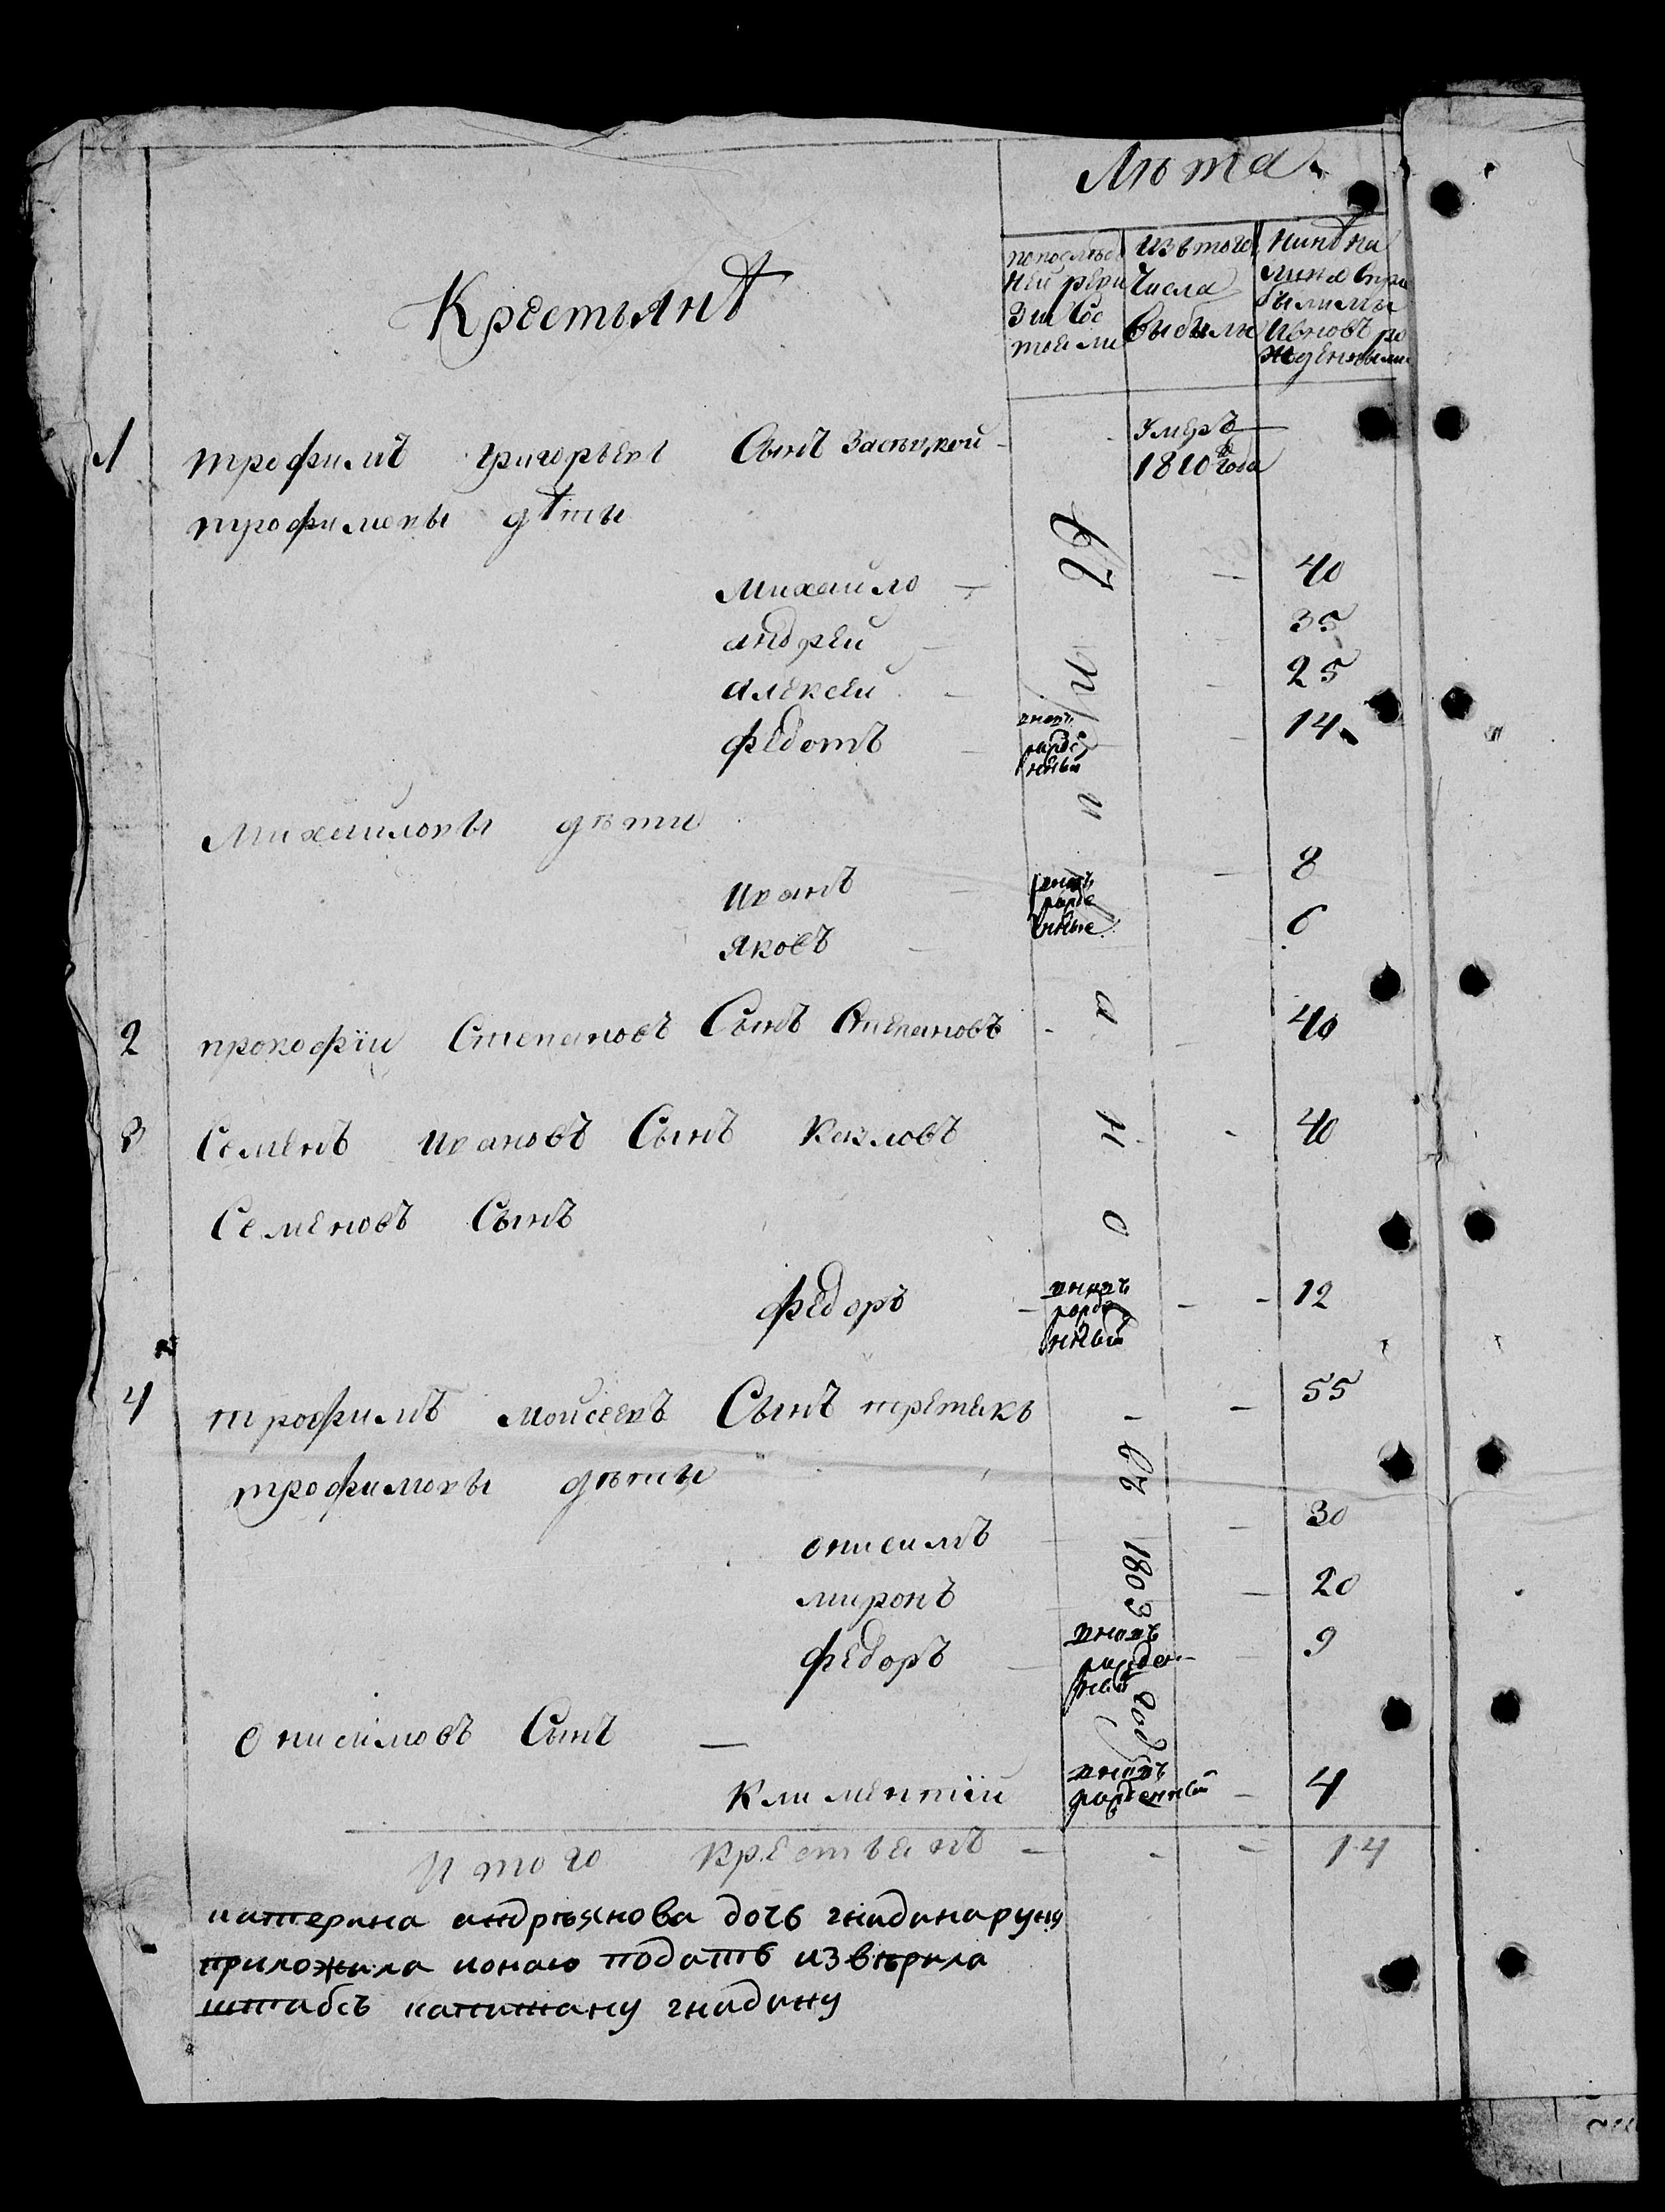 Лѣта
Крестьянѣ
по послѣд
ней реви
зіи сос
тояли
изъ того
числа
выбыли
нинѣ на
лицо спри
былыми
ивновъ ро
жденными
1 трофимъ григорьевъ Сынъ
Умеръ
1810 года
трофимовы дѣти
Михайло 40
андрей 35
алексей 25
федотъ вновь рожденный 14
Михайловы дѣти
иванъ вновь рожденные 8
яковъ 6
2 прокофіи Степановъ Сынъ Степановъ 40
3 Семенъ ивановъ Сынъ Казловъ 40
Семеновъ Сынъ
федоръ вновь рожденный 12
4 трофимъ мойсеевъ Сынъ третякъ 55
трофимовы дѣти
онисимъ 30
миронъ 20
федоръ вновь рожденный 9
Онисимовъ Сынъ
Климентій вновь рожденный 4
писано въ 1803 год
Итого Крестьянъ 14
катерина андрѣянова дочь гнидина руку
приложила подать извѣрила
штабсъ капитану гнидину